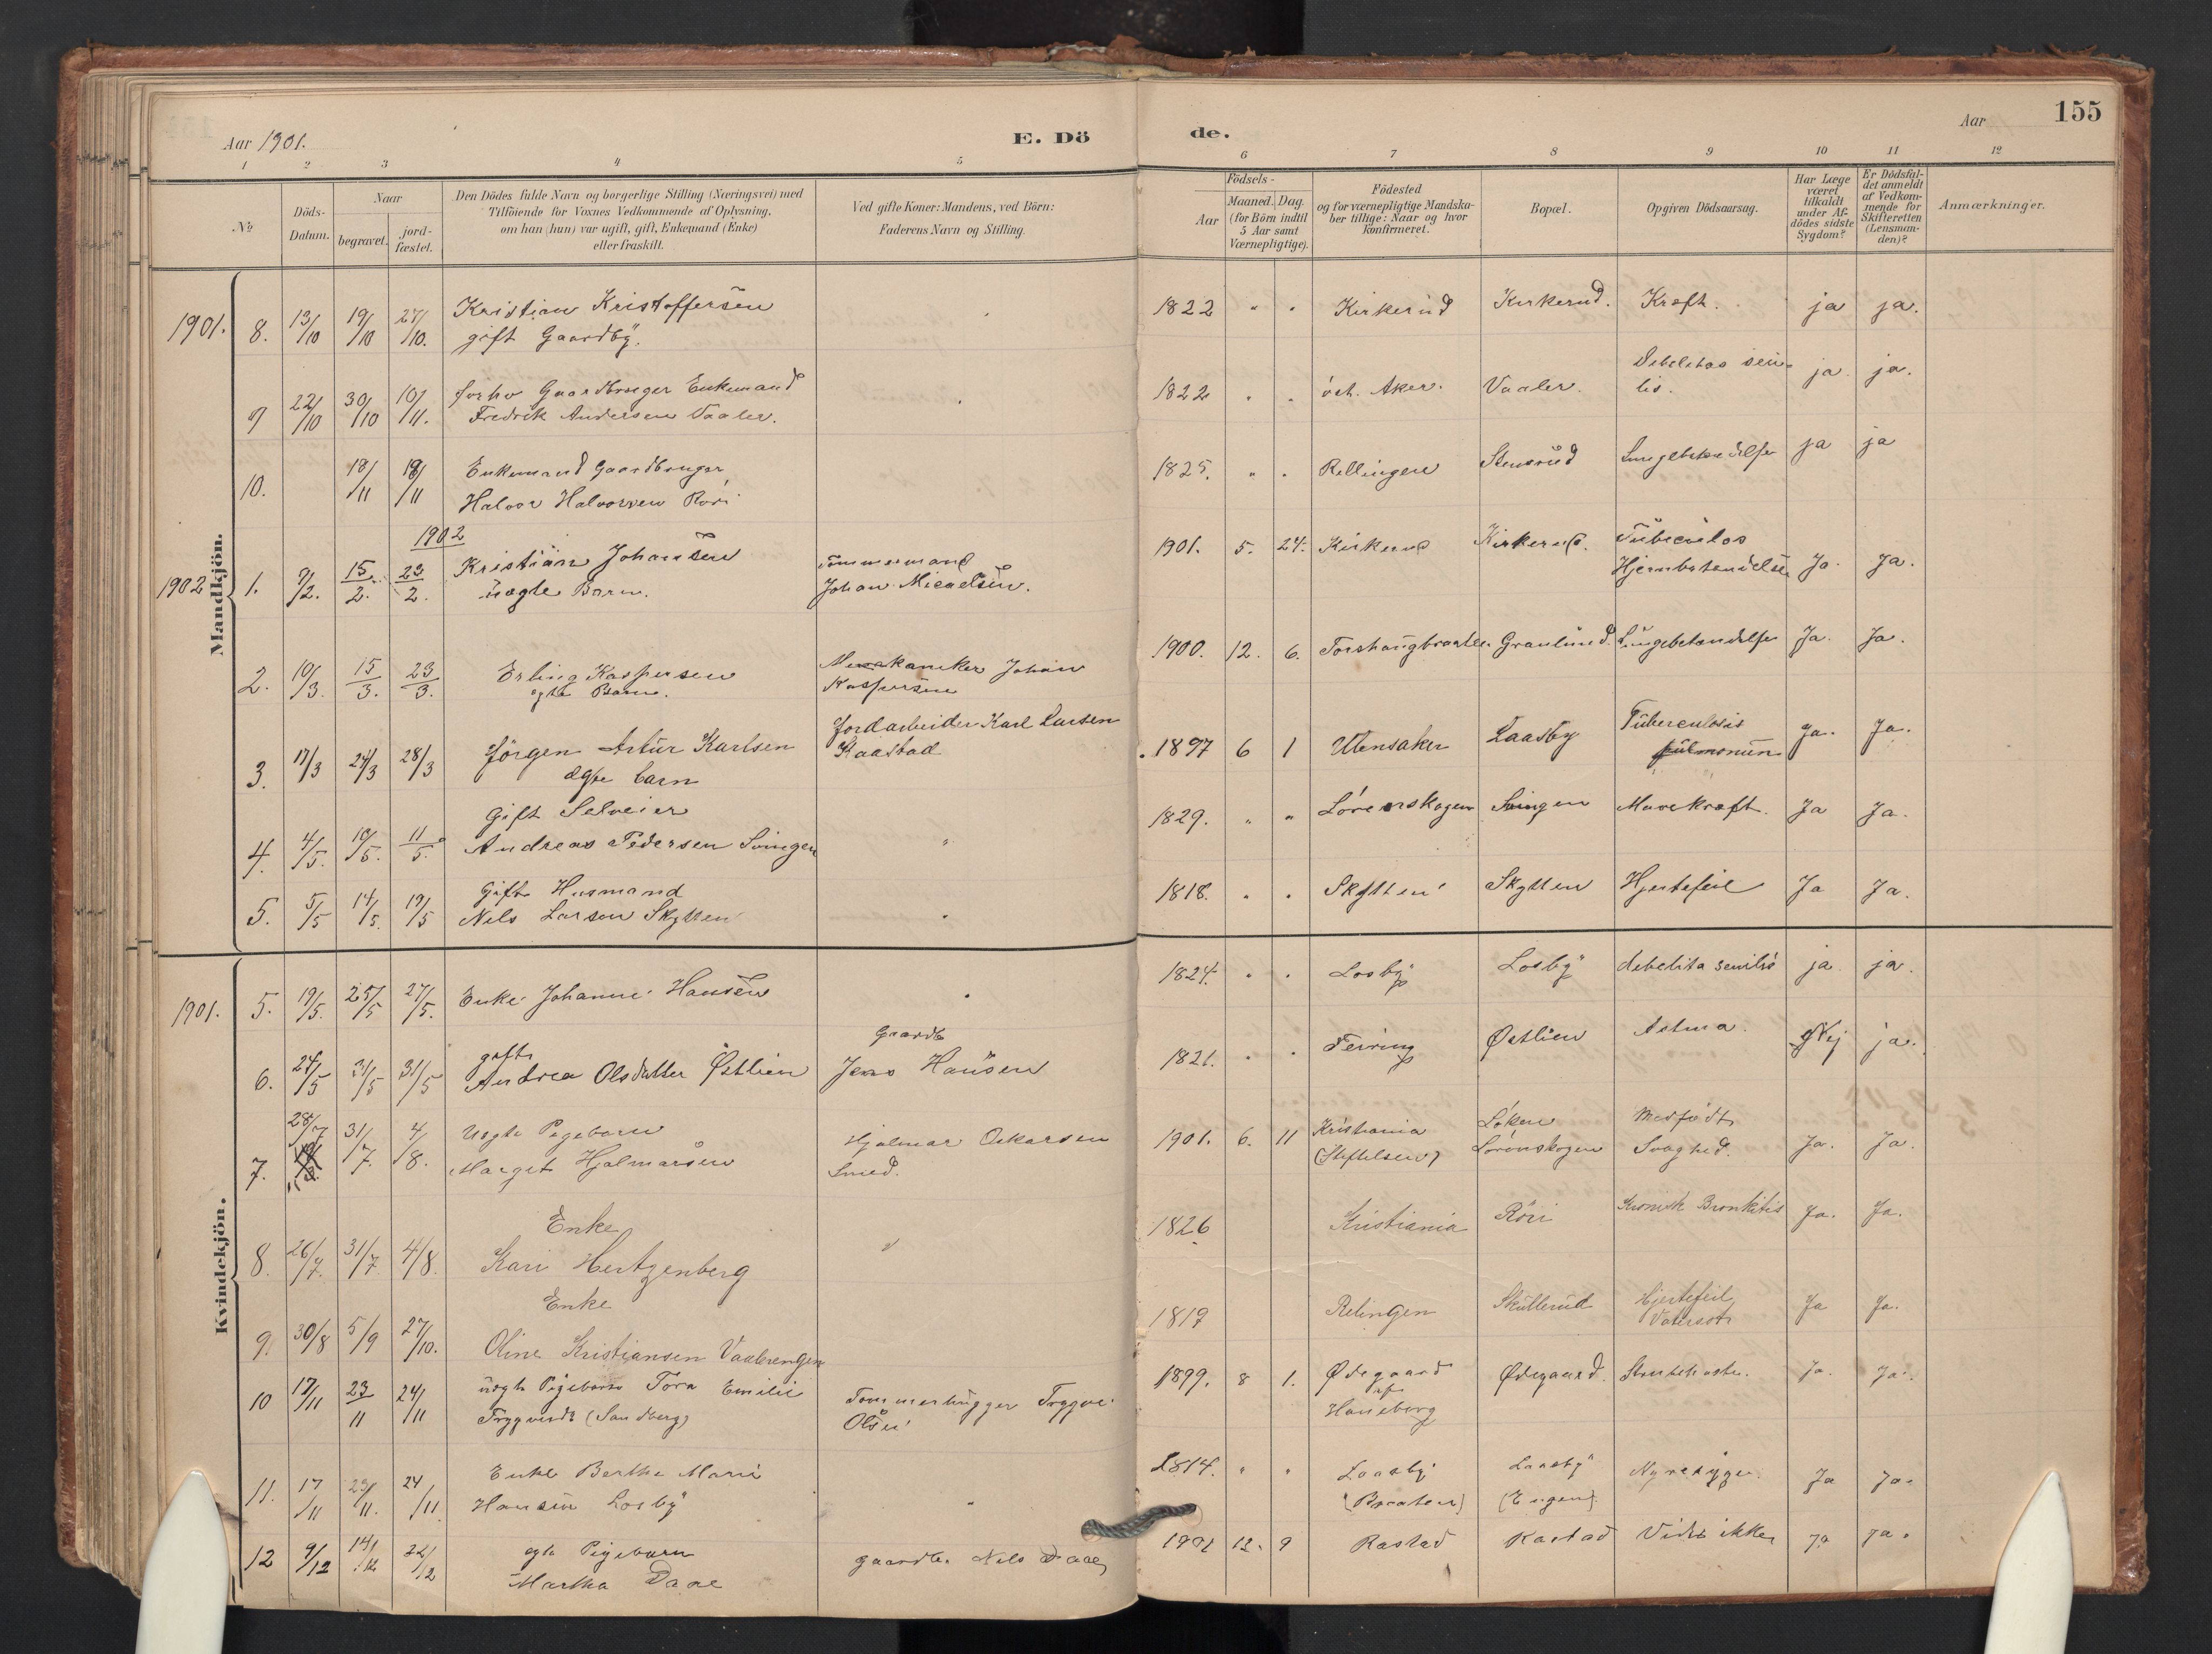 155
Aar 1901.
E. Dö
de.
Aar
1 2 3 4 5 6 7 8 9 10 11 12
No
Döds-
Datum.
Naar
begravet.
jord-
fæstet.
Den Dödes fulde Navn og borgerlige Stilling (Næringsvei) med
Tilföiende for Voxnes Vedkommende af Oplysning,
om han (hun) var ugift, gift, Enkemand (Enke)
eller fraskilt.
Ved gifte Koner: Mandens, ved Börn:
Faderens Navn og Stilling.
Födsels-
Aar
Maaned. Dag.
(for Börn indtil
5 Aar samt
Værnepligtige).
Födested
og for værnepligtige Mandska-
ber tillige: Naar og hvor
konfirmeret.
Bopæl.
Opgiven Dödsaarsag.
Har Læge
været
tilkaldt
under Af-
dödes sidste
Sygdom?
Er Dödsfal-
det anmeldt
af Vedkom-
mende for
Skifteretten
(Lensman-
den)?
Anmærkninger.
Mandkjön.
1901. 8. 13/10 19/10 27/10. Kristian Kristoffersen
gift Gaardby.
1822 " " Kirkerud Kirkerud. Kræft. ja ja.
9 22/10 30/10 10/11. forhv Gaardbruger Enkemand
Fredrik Andersen Vaaler.
1822 " " öst. Aker. Vaaler. Debelitas sen-
lis. ja. ja.
10. 18/11 18/11 Enkemand Gaardbruger
Halvor Halvorsen Röri
1825. " " Rellingen Stensrud Lungebetændelse ja ja
1902
1902 1. 9/2. 15/2. 23/2. Kristian Johansen
uægte Barn.
Tommermand
Johan Micaelsen.
1901. 5. 24. Kirkerud Kirkerud. Tuberculos
Hjernbetændelse Ja. Ja.
2. 10/3. 15/3. 23/3. Erling Kaspersen
ægte Barn.
Mekaniker Johan
Kaspersen
1900. 12. 6. Torshaugbraaten Granlund. Lungebetændelse Ja. Ja.
3. 17/3 24/3 28/3 Jörgen Artur Karlsen
ægte barn
Jordarbeider Karl Larsen
Raastad
1897 6 1 Ulensaker Laasby Tuberculosis
pulmonum Ja. Ja.
4. 4/5. 10/5. 11/5. Gift Selveier
Andreas Pedersen Svingen "
1829. " " Lörenskogen Svingen Mavekræft. Ja Ja.
5. 5/5 14/5. 19/5 Gift Husmand
Nels Larsen Skytten "
1818. " " Skytten Skytten Hjertefeil Ja Ja.
Kvindekjön.
1901. 5. 19/5. 25/5 27/5. Enke Johanne Hansen "
1824. " " Losby Losby debelita senilis ja ja.
6. 24/5 31/5 31/5 gift
Andrea Olsdatter Østlien
Gaardb
Jens Hansen
1821. " " Feiring Østlien Astma. Nej ja.
7. 28/7 31/7. 4/8. Uægte Pigebarn
Marget Hjalmarsen
Hjalmar Oskarsen
Smed.
1901. 6. 11 Kristiania
(Stiftelsen) Löken
Lörenskogen Medfödt
Svaghed. Ja. Ja.
8. 26/7. 31/7 4/8. Enke
Kari Hertzenberg
1826 Kristiania Röri Kronisk Bronkitis Ja. Ja.
9. 30/8 5/9 27/10. Enke
Oline Kristiansen Vaalerengen
1819 Relingen Skullerud Hjertefeil
Vatersot Ja Ja.
10 17/11 23/11 24/11 uægte Pigebarn Tora Emilie
Trygvesdt (Sandberg)
Tommerhugger Trygve
Olsen
1899. 8 1. Ødegaard
u/
Haneborg Ødegaard. Strubehoste. Ja. Ja.
11. 17/11 23/11. 24/11 Enke Berthe Marie
Hansen Losby "
1814. " " Laasby
(Braaten) Laasby
(Engen) Nyresyge. Ja Ja.
12 9/12 14/12 22/12 ægte Pigebarn
Martha Daae
gaardb. Nils Daae
1901 12. 9 Rastad Rastad Vides ikke Ja Ja.